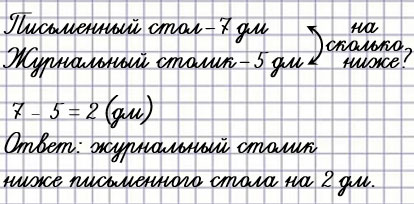 Письменный стол – 7 дм на
сколько
Журнальный столик – 5 дм ниже?
7 – 5 = 2 (дм)
Ответ: журнальный столик
ниже письменного стола на 2 дм.